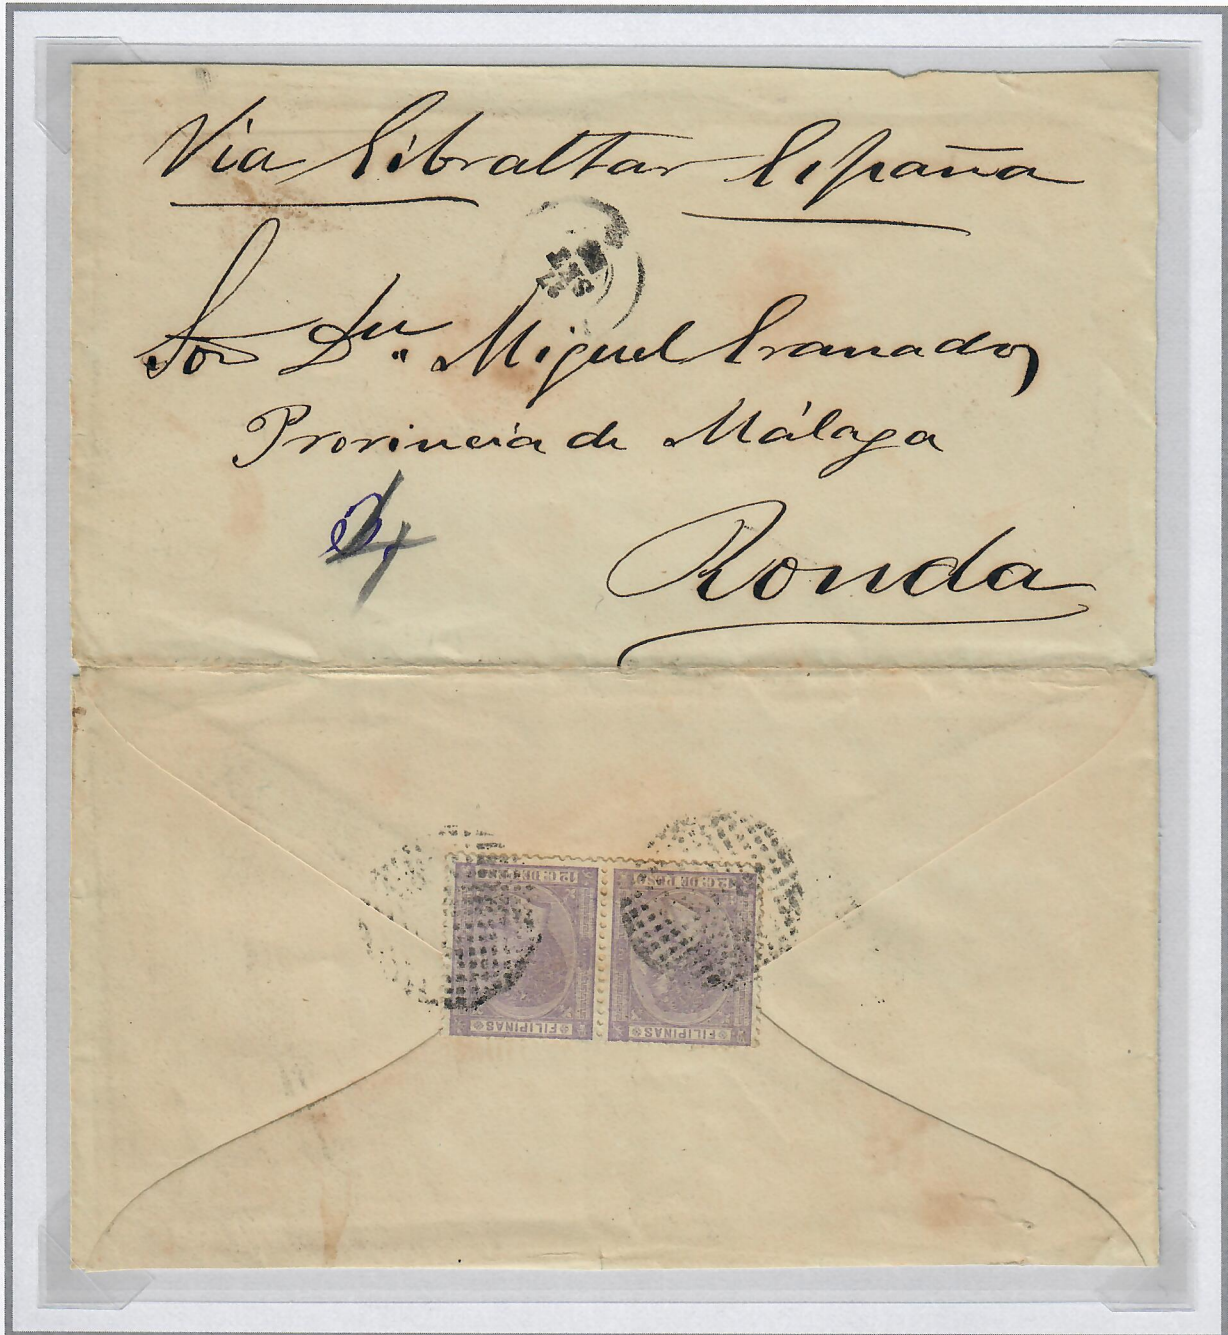 Via Gibraltar España
Sor Dn. Miguel Granados
Provincia de Málaga
Ronda
12 C. DE PESO
12 C. DE PESO
FILIPINAS
FILIPINAS